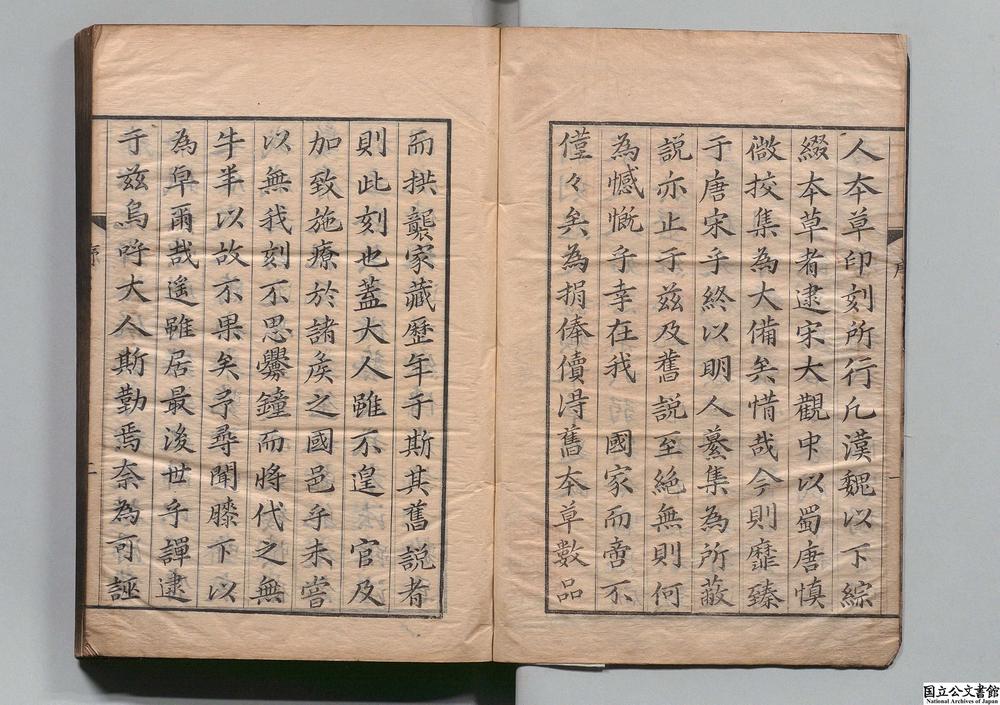 人本草印刻所行凡漢魏以下綜
綴本草者逮宋大觀中以蜀唐慎
微挍集為大備矣惜哉今則靡臻
于唐宋乎終以明人纂集為所蔽
說亦止于茲及舊說至絕無則何
為憾慨乎幸在我 國家而啻不
僅々矣為捐俸償得舊本草數品
序
一
而拱襲家藏歷年于斯其舊說者
則此刻也蓋大人雖不遑 官及
加致施療於諸矦之國邑乎未嘗
以無我刻不思釁鐘而將代之無
牛羊以故不果矣予尋聞膝下以
為皁爾哉遙雖居最後世乎譂逮
于茲烏呼大人斯勤焉奈為可誣
序
二
国立公文書館
National Archives of Japan